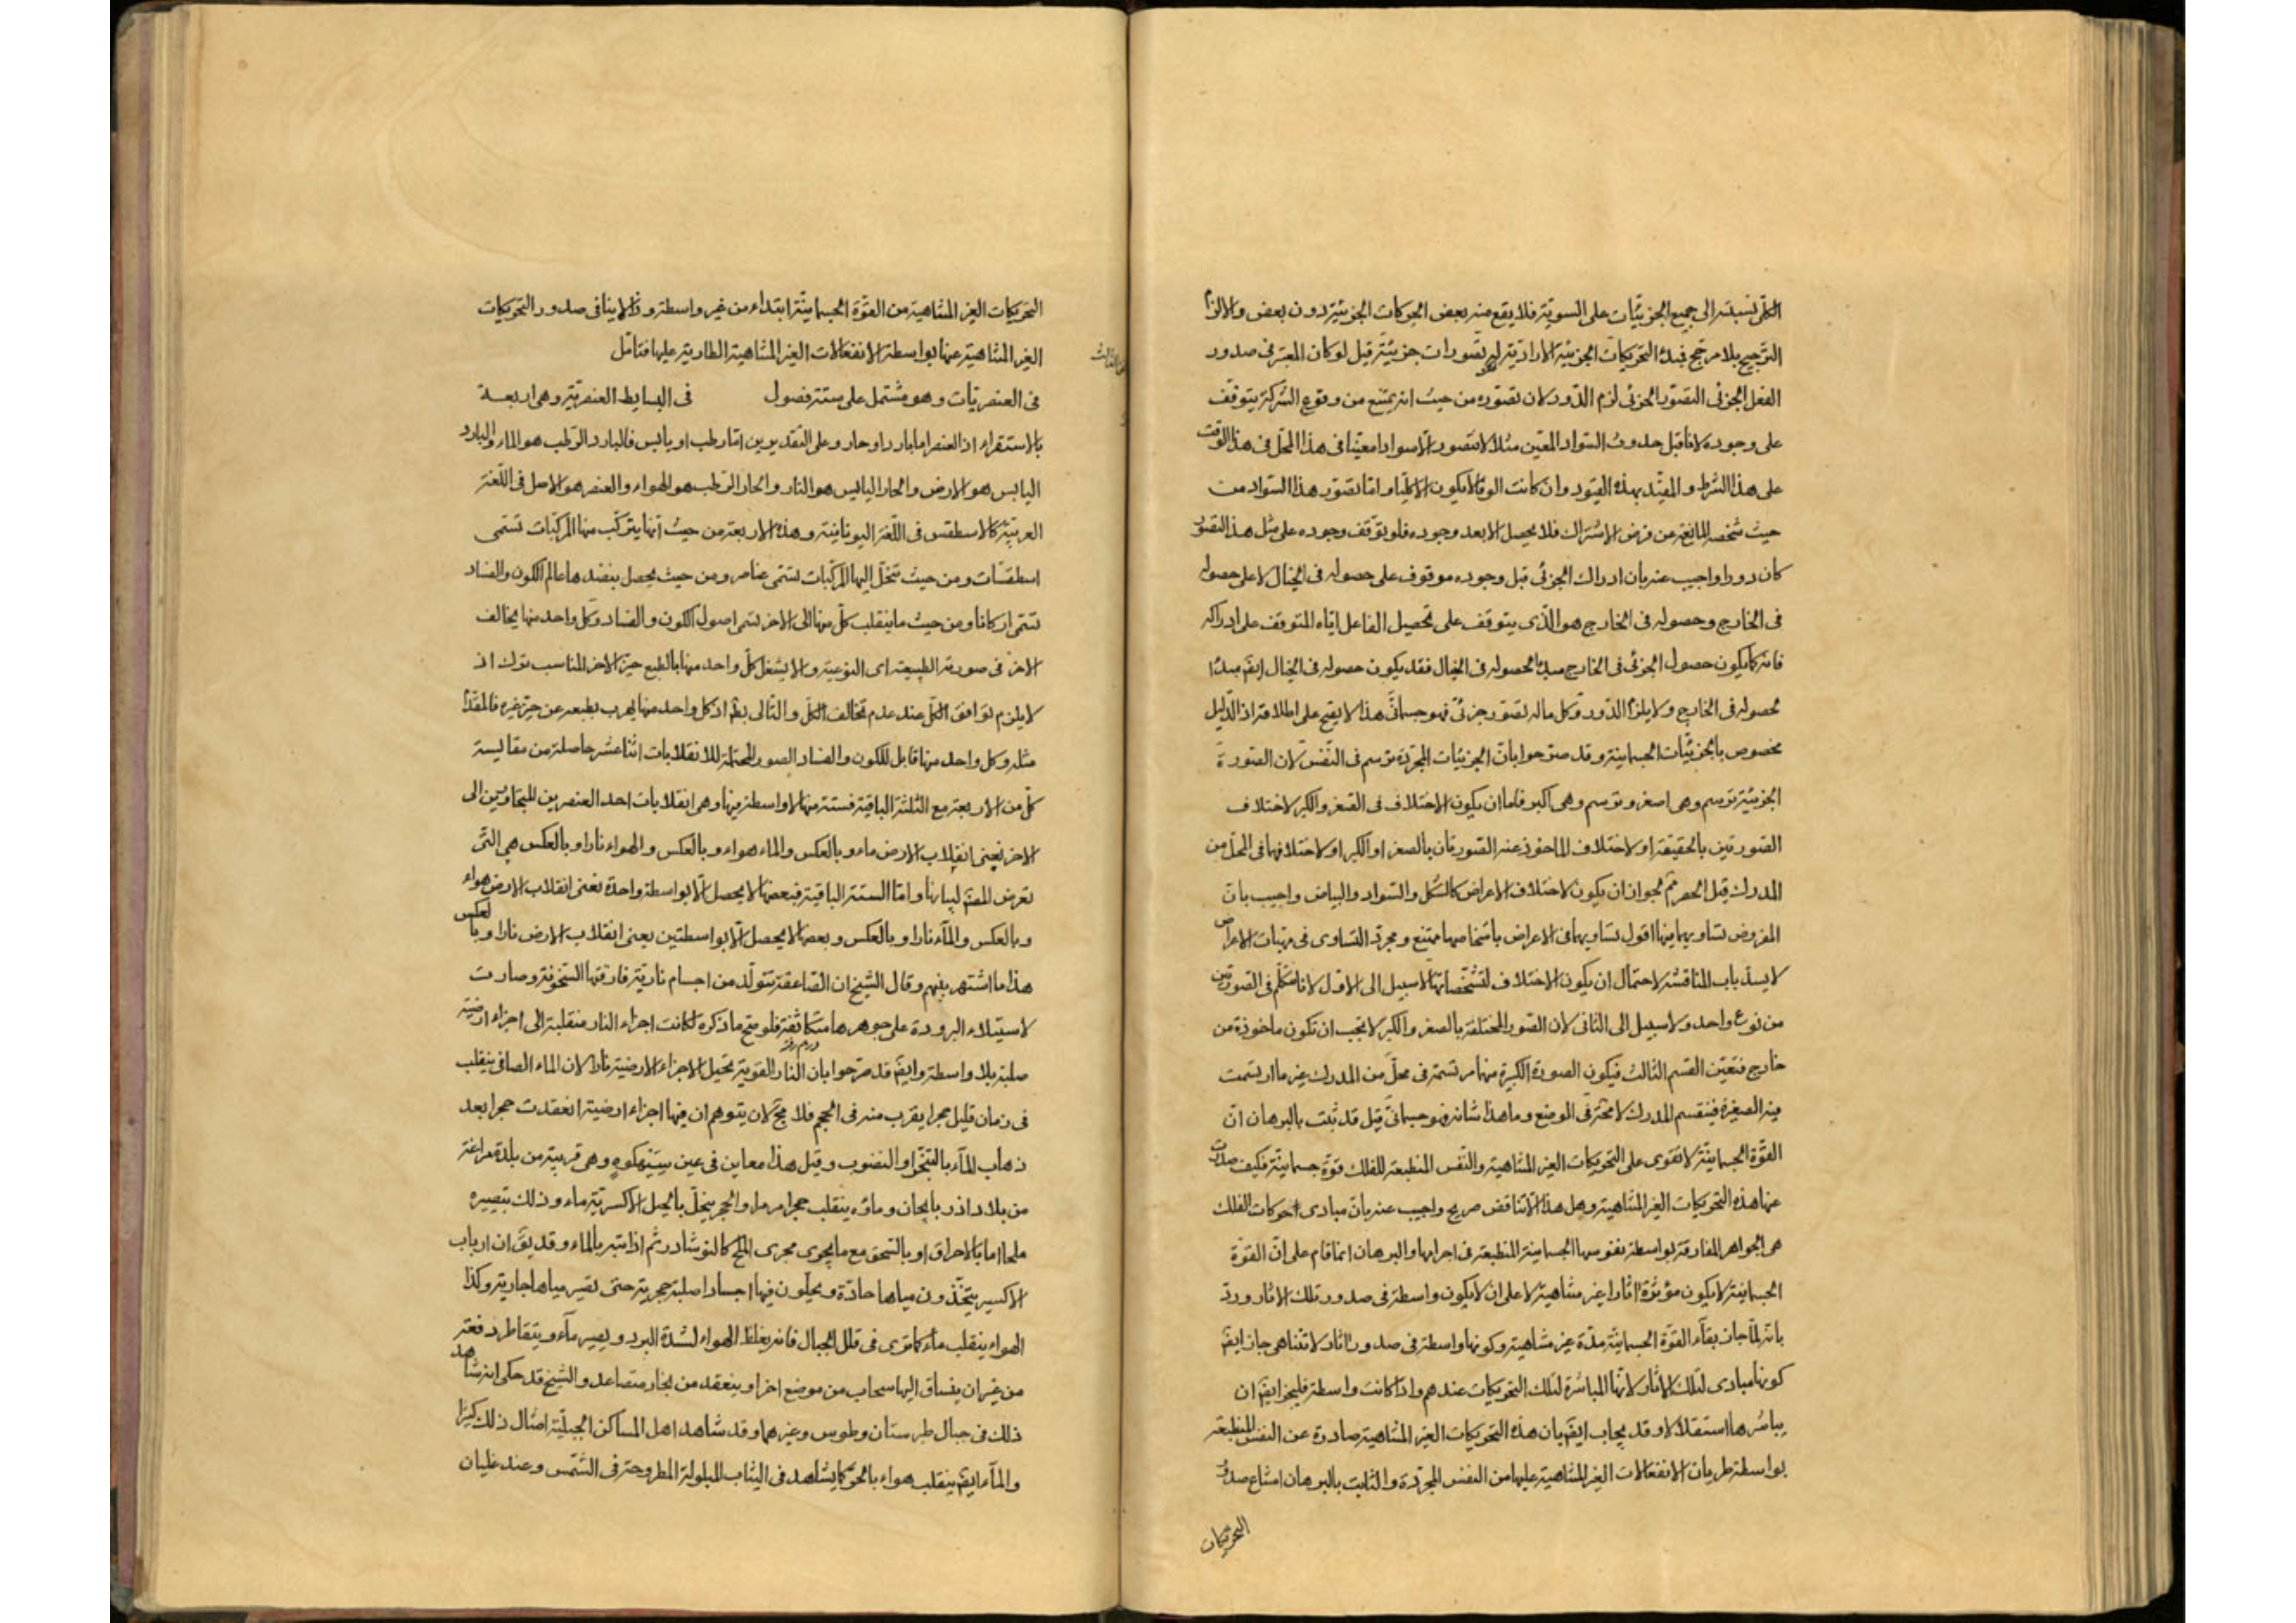 الكلّى نسبته الى جميع الجزئيّات على السويّة فلا يقع منه بعض الحركات الجزئيّة دون بعض والا لزم
الترجيح بلا مرجّح فمبدء التحريكات الجزئيّة الاراديّة له تصورات جزئيّة قيل لو كان المعتبر فى صدور
الفعل الجزئى التصوّر الجزئى لزم الدّور لان تصوّره من حيث انه يمتنع من وقوع الشركة يتوقّف
على وجوده لانا قبل حدوث السّواد المعيّن مثلا لا نتصور الا سوادا معيّنا فى هذا المحلّ فى هذا الوقت
على هذا الشرط والمقيّد بهذه القيود وان كانت الوفا لا يكون الا كليا وامّا تصوّر هذا السّواد من
حيث شخصه المانعة من فرض الاشتراك فلا يحصل الا بعد وجوده فلو توقّف وجوده على مثل هذا التصوّر
كان دورا واجيب عنه بان ادراك الجزئى قبل وجوده موقوف على حصوله فى الخيال لا على حصوله
فى الخارج وحصوله فى الخارج هو الذى يتوقف على تحصيل الفاعل ايّاه المتوقف على ادراكه
فانه كما يكون حصول الجزئى فى الخارج مبدأ لحصوله فى الخيال فقد يكون حصوله فى الخيال ايضا مبدأ
لحصوله فى الخارج ولا يلزم الدّور وكل ماله تصوّر جزئىّ فهو جسمانىّ هذا لا يصح على اطلاقه اذ الدّليل
مخصوص بالجزئيّات الجسمانيّة وقد صرّحوا بانّ الجزئيات المجرّدة ترسم فى النّفس لانّ الصّورة
الجزئيّة ترسم وهى اصغر وترسم وهى اكبر فامّا ان يكون الاختلاف فى الصّغر والكبر لاختلاف
الصّورتين بالحقيقة او لاختلاف الماخوذ عنه الصّورتان بالصغر او الكبر او لاختلافهما فى المحلّ من
المدرك قيل الحصر مم لجواز ان يكون لاختلاف الاعراض كالشكل والسّواد والبياض واجيب بانّ
المفروض تساويهما فيها اقول تساويهما فى الاعراض باشخاصها ممتنع ومجرّد التساوى فى مهيّات الاعراض
لا يسدّ باب المناقشة لاحتمال ان يكون الاختلاف لتشخّصاتها لا سبيل الى الاوّل لانا نتكلّم فى الصّورتين
من نوع واحد ولا سبيل الى الثانى لانّ الصّور المختلفة بالصغر والكبر لا يجب ان تكون ماخوذة من
خارج فتعيّن القسم الثالث فيكون الصورة الكبيرة منها مرتسمة فى محلّ من المدرك غير ما ارتسمت
فيه الصغيرة فينقسم المدرك لا محة فى الوضع وما هذا شانه فهو جسمانىّ قيل قد ثبت بالبرهان انّ
القوّة الجسمانيّة لا تقوى على التحريكات الغير المتناهية والنّفس المنطبعة للفلك قوّة جسمانيّة فكيف صدرت
عنها هذه التحريكات الغير المتناهية وهل هذا الا تناقض صريح واجيب عنه بانّ مبادى حركات الفلك
هى الجواهر المفارقة بواسطة نفوسها الجسمانية المنطبعة فى اجرامها والبرهان انما قام على انّ القوّة
الجسمانيّة لا يكون مؤثّرة اثارا غير متناهية لا على ان لا يكون واسطة فى صدور تلك الاثار وردّ
بانه لمّا جاز بقآء القوّة الجسمانيّة مدّة غير متناهية وكونها واسطة فى صدور اثار لا تتناهى جاز ايضا
كونها مبادى لتلك الاثار لانّها المباشرة لتلك التحريكات عندهم واذا كانت واسطة فليجز ايضا ان
يباشرها استقلالا وقد يجاب ايضا بان هذه التحريكات الغير المتناهية صادرة عن النفس المنطبعة
بواسطة طريان الانفعالات الغير المتناهية عليها من النفس المجرّدة والثابت بالبرهان امتناع صدور
التحريكات
التحريكات الغير المتناهية من القوّة الجسمانيّة ابتداء من غير واسطة وذا لا ينافى صدور التحريكات
الغير المتناهية عنها بواسطة الانفعالات الغير المتناهية الطارية عليها فتامّل
الثالث
فى العنصريّات وهو مشتمل على ستة فصول فى البسايط العنصريّة وهى اربعة
بالاستقراء اذ العنصر اما بارد او حار وعلى التقديرين امّا رطب او يابس فالبارد الرّطب هو الماء والبارد
اليابس هو الارض والحار اليابس هو النار والحار الرّطب هو الهواء والعنصر هو الاصل فى اللّغة
العربيّة كالاسطقس فى اللّغة اليونانيّة وهذه الاربعة من حيث انّها يتركّب منها المركّبات تسمّى
اسطقسّات ومن حيث تنحلّ اليها المركّبات تسمّى عناصر ومن حيث يحصل بنضدها عالم الكون والفساد
تسمّى اركانا ومن حيث ما ينقلب كلّ منها الى الاخر تسمى اصول الكون والفساد وكل واحد منها يخالف
الاخر فى صورته الطبيعية اى النوعيّة والا يشغل كلّ واحد منها بالطبع حيّز الاخر المناسب ترك اذ
لا يلزم توافق الكلّ عند عدم تخالف الكلّ والتالى بط اذ كل واحد منها يهرب بطبعه عن حيّز غيره فالمقدّم
مثله وكل واحد منها قابل للكون والفساد الصور المحتملة للانقلابات اثنا عشر حاصلة من مقايسة
كلّ من الاربعة مع الثلثة الباقية فستة منها لا واسطة فيها وهى انقلابات احد العنصرين المتجاورين الى
الاخر يعنى انقلاب الارض ماء وبالعكس والماء هواء وبالعكس والهواء نارا وبالعكس هى التى
تعرض المصنّف لبيانها وامّا الستة الباقية فبعضها لا يحصل الا بواسطة واحدة يعنى انقلاب الارض هواء
وبالعكس والمآء نارا وبالعكس وبعضها لا يحصل الا بواسطتين يعنى انقلاب الارض نارا وبالعكس
هذا ما اشتهر بينهم وقال الشيخ ان الصّاعقة تتولّد من اجسام ناريّة فارقتها السّخونة وصارت
لاستيلاء البرودة على جوهرها متكاثفة فلو صح ما ذكره لكانت اجزاء النار منقلبة الى اجزاء ارضيّة
صلبة بلا واسطة وايضا قد صرّحوا بان النار القوية تحيل الاجزاء الارضية نارا لان الماء الصافى ينقلب
فى زمان قليل حجرا يقرب منه فى الحجم فلا مج لان يتوهم ان فيها اجزاء ارضية انعقدت حجرا بعد
ذهاب المآء بالتبخّر او النضوب وقيل هذا معاين فى عين سيه كوه وهى قرية من بلدة مراغة
من بلاد اذربايجان وماؤه ينقلب حجرا مرمرا والحجر ينحلّ بالحيل الاكسيريّة ماء وذلك بتصييره
ملحا اما بالاحراق او بالسّحق مع ما يجرى مجرى الملح كالنوشادر ثم اذابته بالماء وقد يق ان ارباب
الاكسير يتّخذون مياها حادّة ويحلّون فيها اجسادا صلبة حجرية حتى تصير مياها جارية وكذا
الهواء ينقلب ماء كما ترى فى قلل الجبال فانه يغلظ الهواء لشدّة البرد ويصير مآء ويتقاطر دفعة
من غير ان ينساق اليها سحاب من موضع اخر او ينعقد من بخار متصاعد والشيخ قد حكى انه شاهد
ذلك فى جبال طبرستان وطوس وغيرهما وقد شاهد اهل المساكن الجبليّة امثال ذلك كثيرا
والمآء ايضا ينقلب هواء بالحرّ كما يشاهد فى الثياب المبلولة المطروحة فى الشّمس وعند غليان